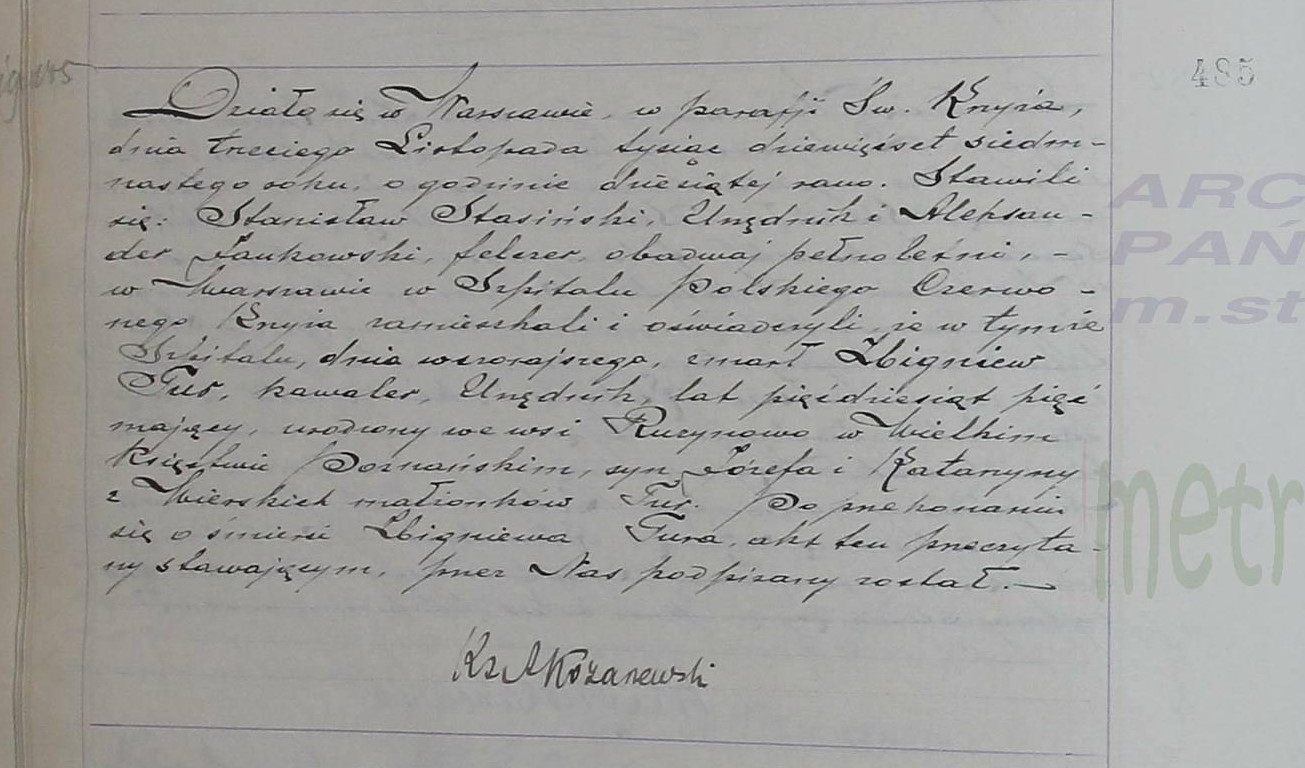 485
Działo się w Warszawie, w parafji Św. Krzyża,
dnia trzeciego Listopada tysiąc dziewięćset siedm-
nastego roku, o godzinie dziesiątej rano. Stawili
się: Stanisław Stasiński, Urzędnik i Aleksan-
der Jankowski, felczer, obadwaj pełnoletni, -
w Warszawie w Szpitalu Polskiego Czerwo-
nego Krzyża zamieszkali i oświadczyli, że w tymże
Szpitalu, dnia wczorajszego, zmarł Zbigniew
Tur, kawaler, Urzędnik, lat pięćdziesiąt pięć
mający, urodzony we wsi Rucynowo w Wielkim
Księstwie Poznańskim, syn Józefa i Katarzyny
z Wierskich małżonków Tur. Po przekonaniu
się o śmierci Zbigniewa Tura, akt ten przeczyta-
ny stawającym, przez Nas podpisany został.—
Ks A Kozanewski
ARC
PAŃ
m.st
metr